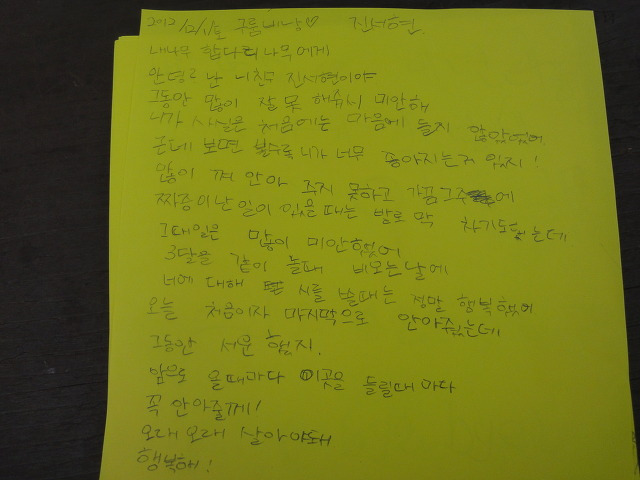 2012/12/1/토 구름비낭♡ 진서현.
내나무 합다리나무에게
안녕? 난 니친구 진서현이야
그동안 많이 잘 못 해줘서 미안해
니가 사실은 처음에는 마음에 들지 않았었어
근데 보면 볼수록 니가 너무 좋아지는거 있지!
많이 껴 안아 주지 못하고 가끔
짜증이난 일이 있을때는 발로 막 차기도했는데
그때일은 많이 미안했어
3달을 같이 놀때 비오는날에
너에 대해 시를 쓸때는 정말 행복했어
오늘 처음이자 마지막으로 안아줬는데
그동안 서운 했지.
앞으로 올때마다 이곳을 들릴때 마다
꼭 안아줄께!
오래오래 살아야돼
행복해!